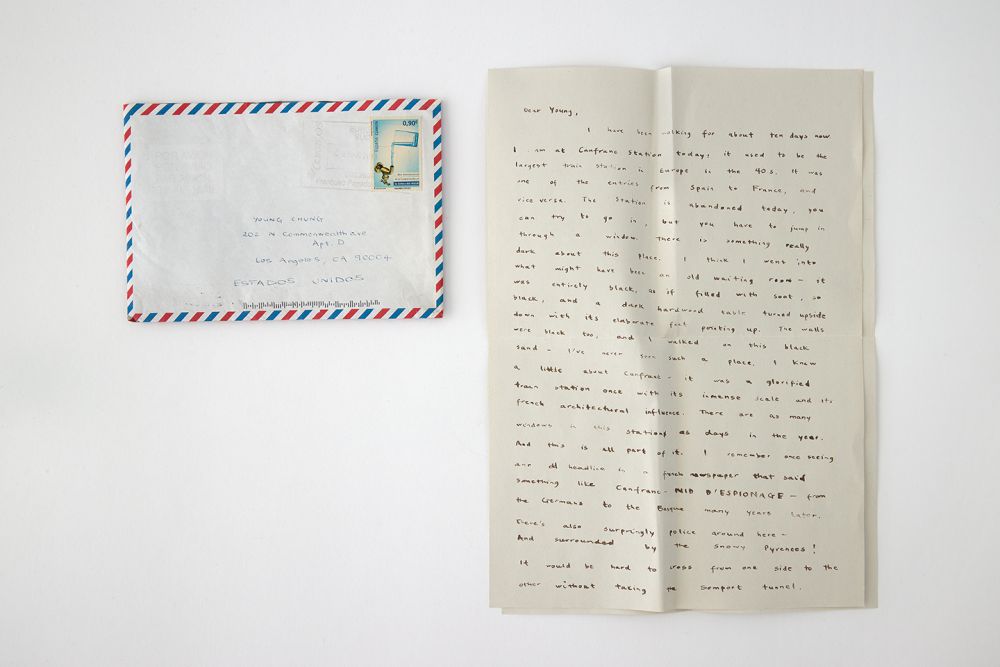 0,90€
YOUNG CHUNG
202 N. Commonwealth ave
Apt. D
Los Angeles, CA 90004
ESTADOS UNIDOS
Dear Young,
I have been walking for about ten days now
I am at Canfranc Station today, it used to be the
largest train station in Europe in the 40.s. It was
one of the entries from Spain to France, and
vice verse. The Station is abandoned today, you
can try to go in, but you have to jump in
through a window. There is something really
dark about this place. I think I went into
what might have been an old waiting room - it
was entirely black, as if filled with soot, so
black, and a dark hardwood table turned upside
down with its elaborate feet pointing up. The walls
were black too, and I walked on this black
sand - I've never seen such a place. I knew
a little about Canfranc - it was a glorified
train station once with its immense scale and its
french architectural influence. There are as many
windows in this stations as days in the year.
And this is all part of it. I remember once seeing
an old headline in a french newspaper that said
something like Canfranc - NID D'ESPIONAGE - from
the Germans to the Basque many years later.
There's also surprisingly police around here -
And surrounded by the snowy Pyrenees!
It would be hard to cross from one side to the
other without taking the Somport tunnel.